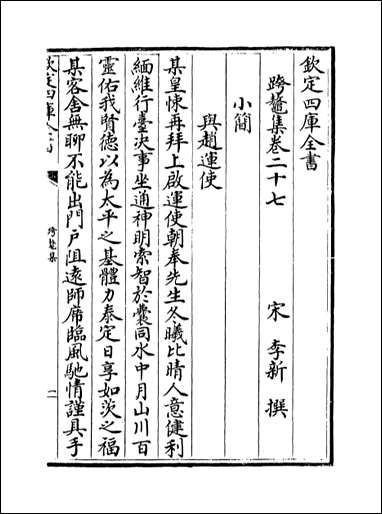 欽定四庫全書
跨鼇集卷二十七
宋 李新 撰
小簡
與趙運使
某皇悚再拜上啟運使朝奉先生冬曦比晴人意健利
緬維行臺決事坐通神明索智於囊同水中月山川百
靈佑我賢德以為太平之基體力泰定日享如茨之福
某客舍無聊不能出門戶阻遠師席臨風馳情謹具手
欽定四庫全書
跨鼇集
一